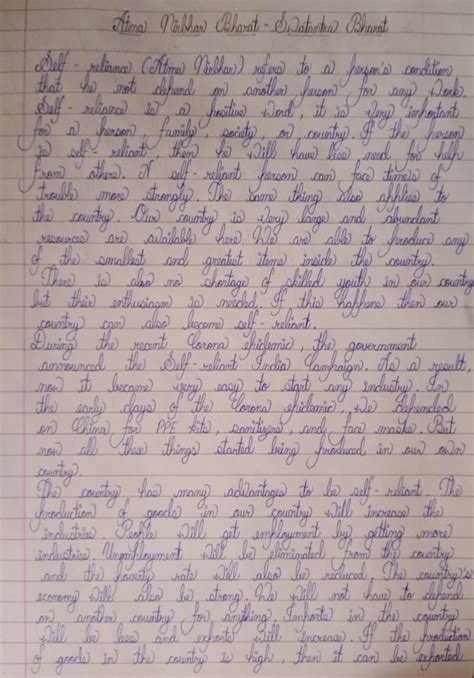 Atma Nirbhar Bharat - Swatantra Bharat
Self - reliance (Atma Nirbhar) refers to a person's condition
that he not depend on another person for any work.
Self - reliance is a positive word, it is very important
for a person, family, society, or country. If the person
is self - reliant, then he will have less need for help
from others. A self - reliant person can face times of
trouble more strongly. The same thing also applies to
the country. Our country is very large and abundant
resources are available here. We are able to produce any
of the smallest and greatest items inside the country.
There is also no shortage of skilled youth in our country
but their enthusiasm is needed. If this happens then our
country can also become self - reliant.
During the recent Corona epidemic, the government
announced the Self - reliant India Campaign. As a result,
now it became very easy to start any industry. In
the early days of the Corona epidemic, we depended
on China for PPE kits, sanitizers, and face masks. But
now all these things started being produced in our own
country.
The country has many advantages to be self - reliant. The
production of goods in our country will increase the
industries. People will get employment by getting more
industries. Unemployment will be eliminated from the country
and the poverty rate will also be reduced. The country's
economy will also be strong. We will not have to depend
on another country for anything. Imports in the country
will be less and exports will increase. If the production
of goods in the country is high, then it can be exported